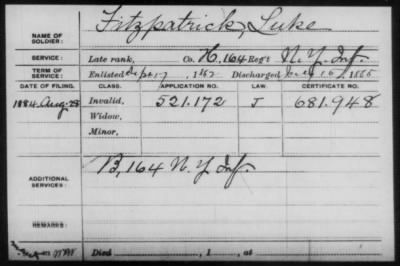 NAME OF SOLDIER: Fitzpatrick, Luke
SERVICE: Late rank, Co. H, 164 Reg't N. Y. Inf.
TERM OF SERVICE: Enlisted Sept 17, 1862 Discharged 1865
DATE OF FILING. CLASS. APPLICATION NO. LAW. CERTIFICATE NO.
1884. Aug. 28 Invalid, 521.172 J 681.948
Widow,
Minor,
ADDITIONAL SERVICES: B, 164 N. Y. Inf.
REMARKS:
Died , 1 , at